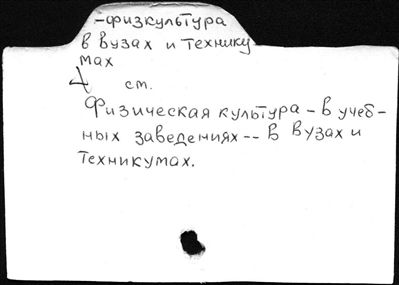 -физкультура
в вузах и технику
мах
см.
Физическая культура - в учеб-
ных заведениях -- в вузах и
техникумах.